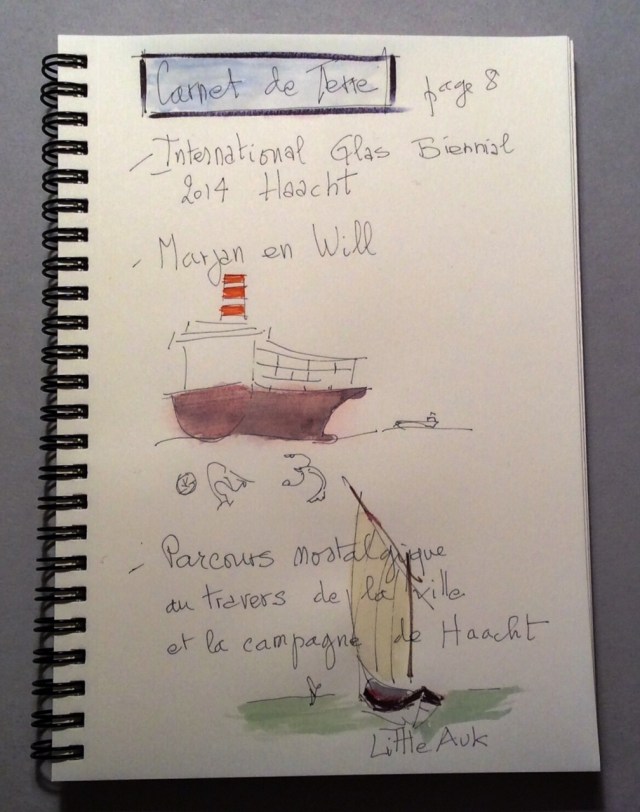 Carnet de Terre page 8
- International Glas Biennial
2014 Haacht
- Marjan en Will
- Parcours nostalgique
au travers de la ville
et la campagne de Haacht
Little Auk